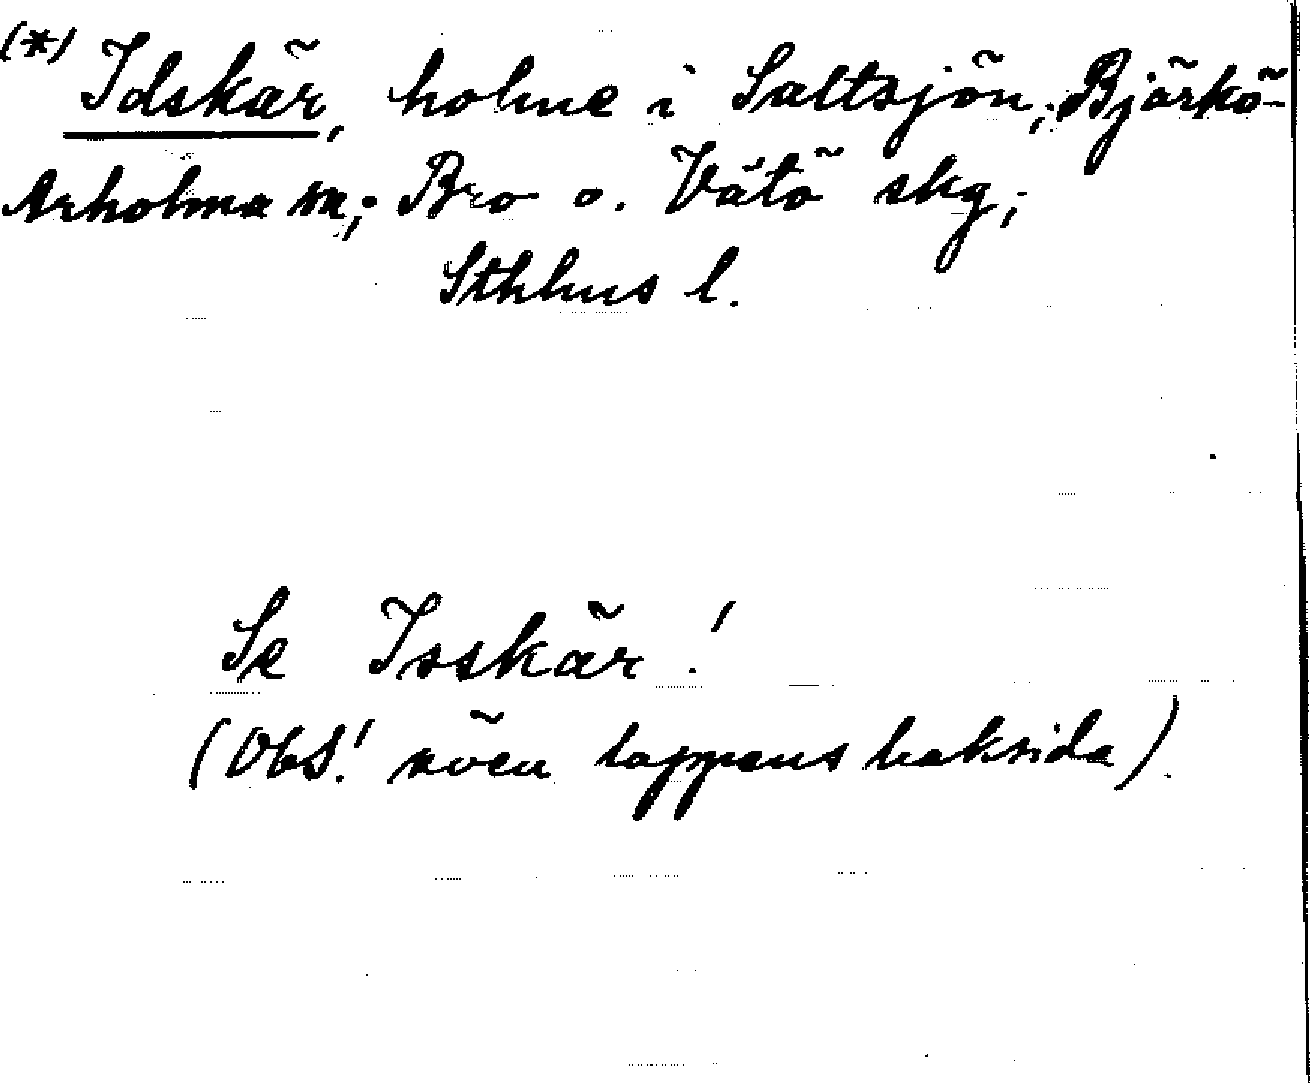 (*) Idskär, holme i Saltsjön, Björkö-
Arholma sn; Bro o. Vätö skg,
Sthlms l.
Se Isskär!
(Obs! även lappens baksida)